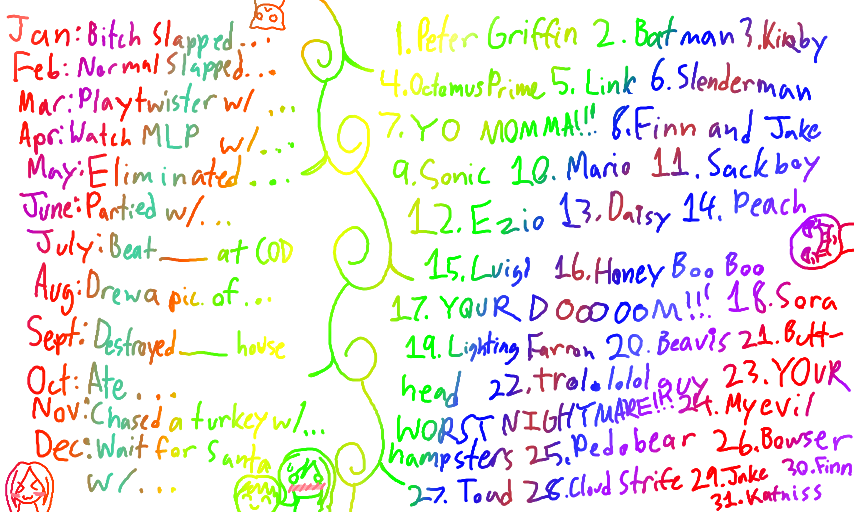 Jan: Bitch Slapped...
Feb: Normal Slapped...
Mar: Play twister w/ ...
Apr: Watch MLP w/ ...
May: Eliminated ....
June: Partied w/...
July: Beat ___ at COD
Aug: Drew a pic. of...
Sept: Destroyed ___ house
Oct: Ate ...
Nov: Chased a turkey w/...
Dec: Wait for Santa
w/ ...
1. Peter Griffin 2. Batman 3. Kirby
4. Octomus Prime 5. Link 6. Slenderman
7. YO MOMMA!!! 8. Finn and Jake
9. Sonic 10. Mario 11. Sackboy
12. Ezio 13. Daisy 14. Peach
15. Luigi 16. Honey Boo Boo
17. YOUR DOOOOOM!!! 18. Sora
19. Lighting Farron 20. Beavis 21. Butt-
head 22. trolololol guy 23. YOUR
WORST NIGHTMARE!!! 24. My evil
hampsters 25. Pedobear 26. Bowser
27. Toad 28. Cloud Strife 29. Jake 30. Finn
31. Katniss